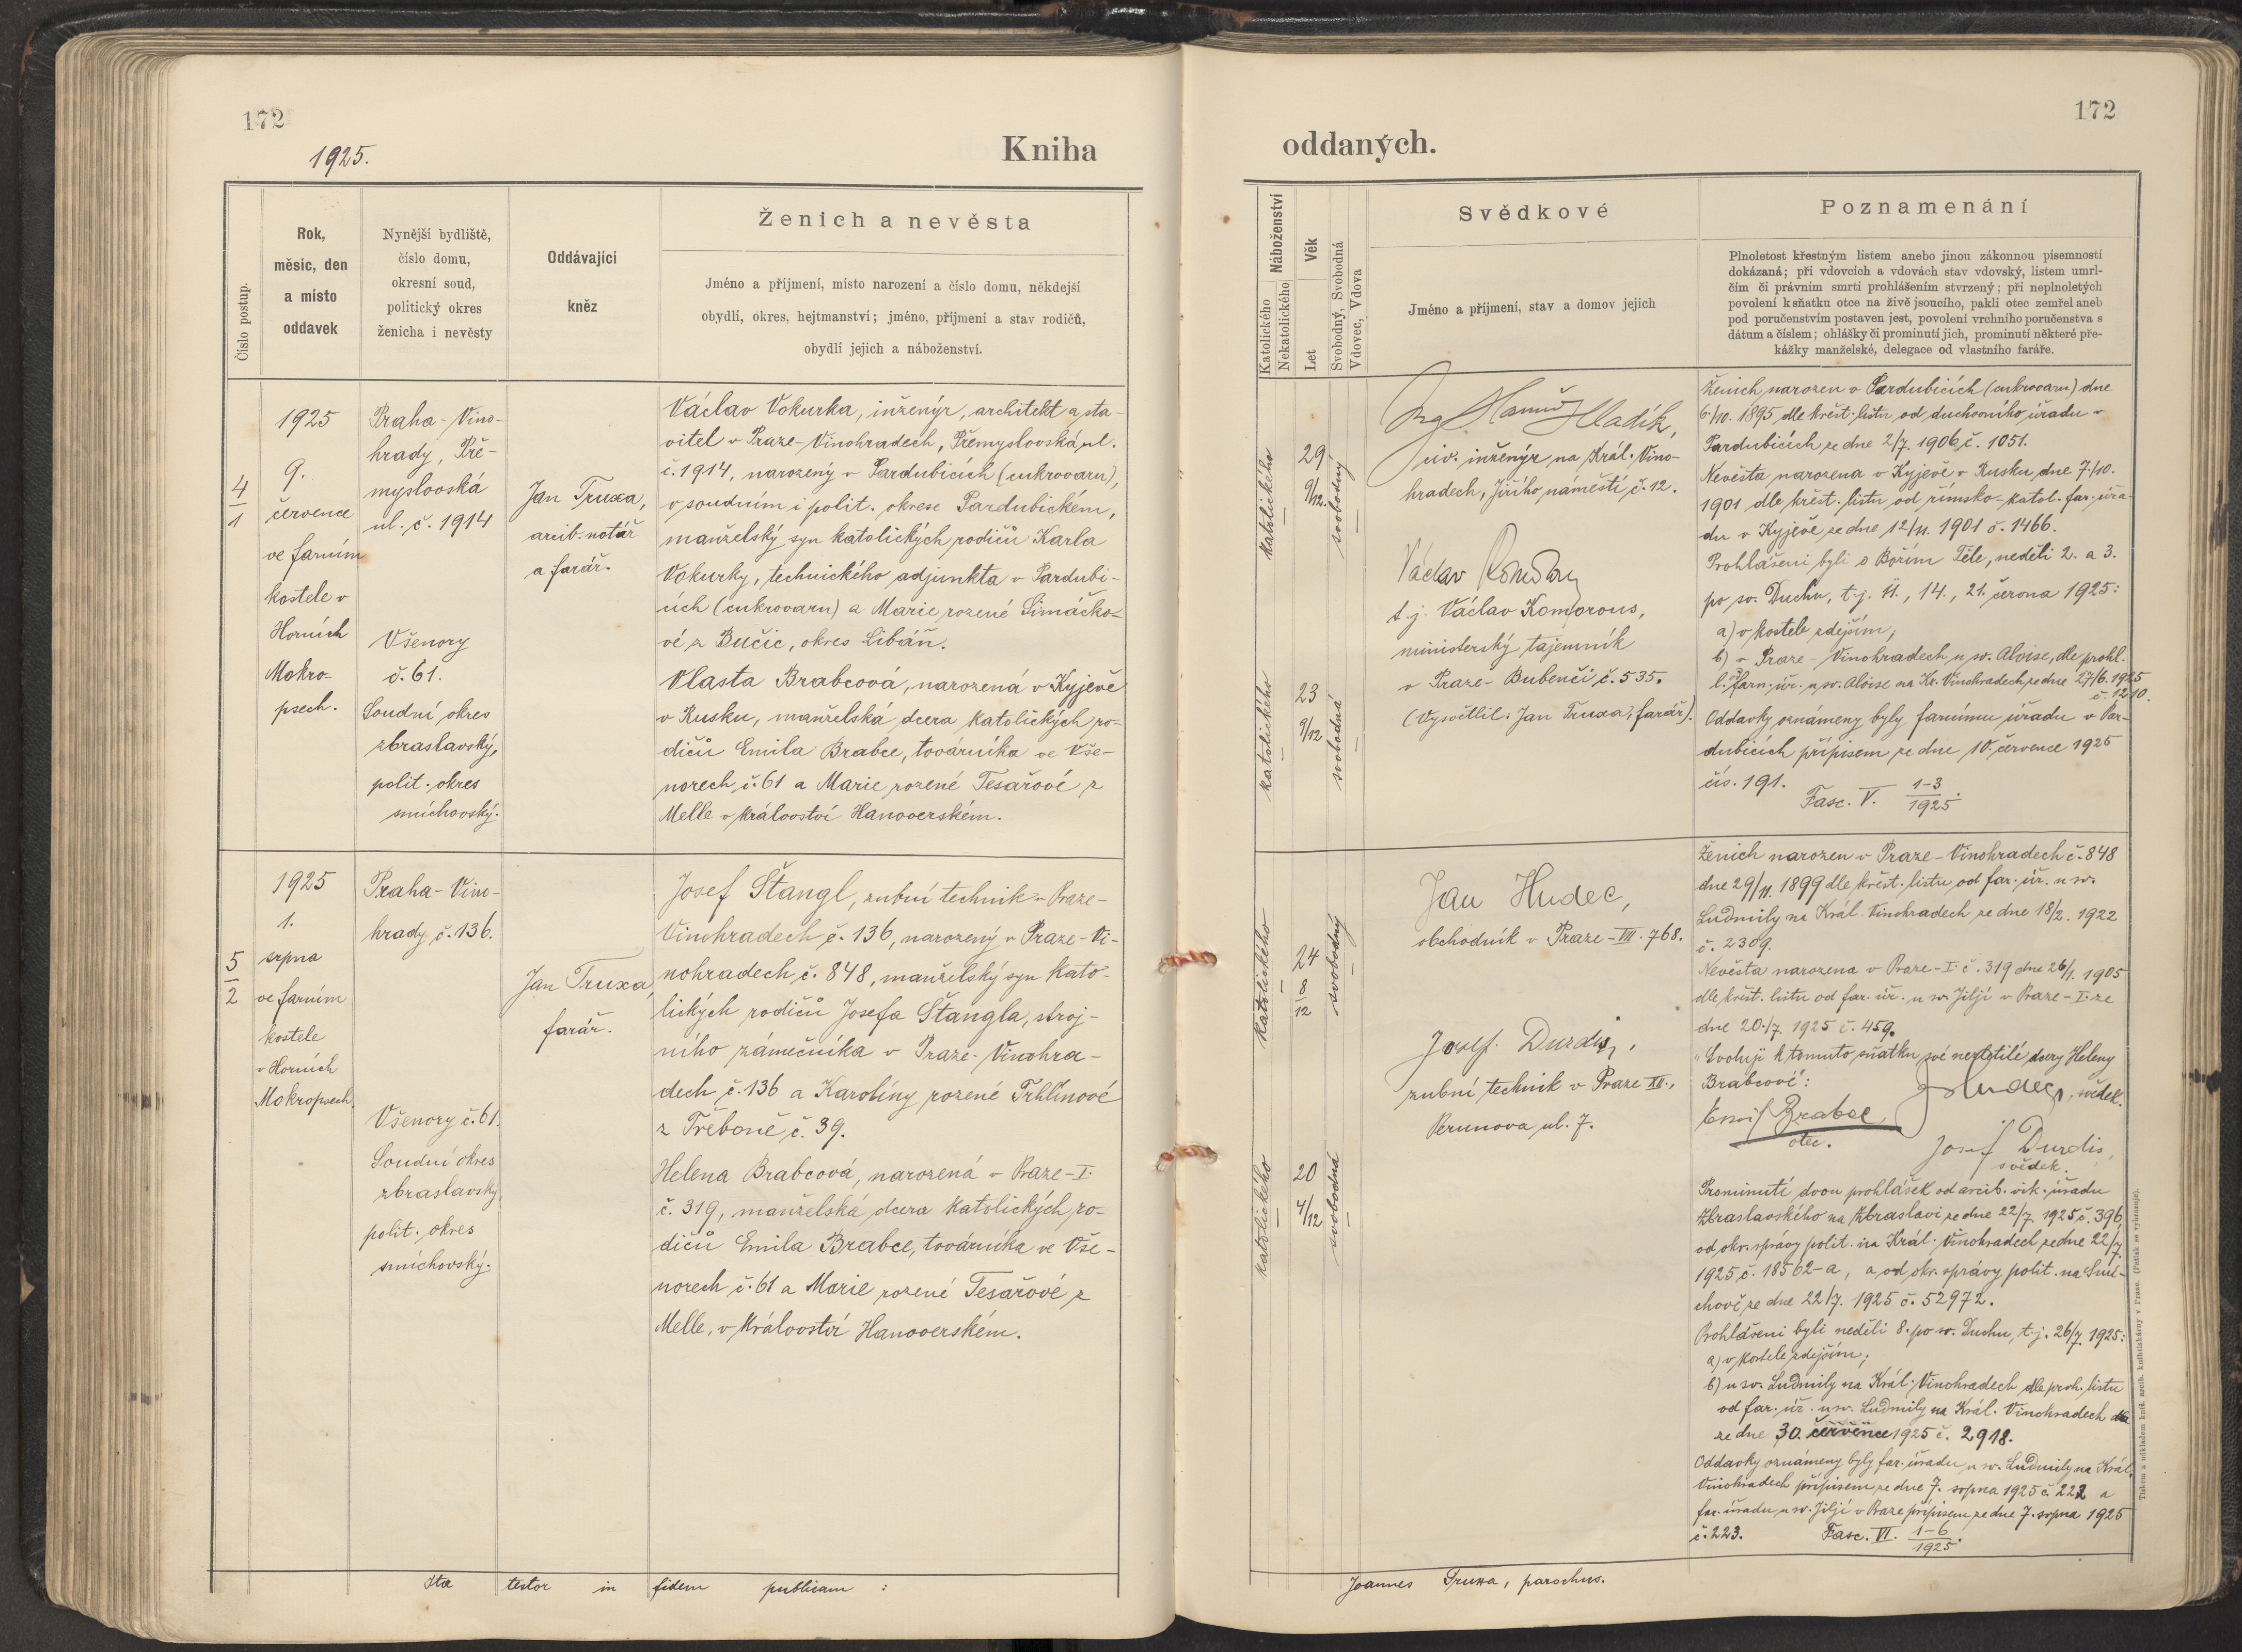 172
1925.
Kniha
Číslo postup.
Rok,
měsíc, den
a místo
oddavek
Nynější bydliště,
číslo domu,
okresní soud,
politický okres
ženicha i nevěsty
Oddávající
kněz
Ženich a nevěsta
Jméno a příjmení, místo narození a číslo domu, někdejší
obydlí, okres, hejtmanství; jméno, příjmení a stav rodičů,
obydlí jejich a náboženství.
4
1
1925
9.
července
ve farním
kostele v
Horních
Mokro-
psech.
Praha-Vino-
hrady, Pře-
myslovská
ul. č. 1914
Všenory
č. 61.
Soudní okres
zbraslavský,
polit. okres
smíchovský.
Jan Truxa,
arcib. notář
a farář.
Václav Vokurka, inženýr, architekt a sta-
vitel v Praze-Vinohradech, Přemyslovská ul.
č. 1914, narozený v Pardubicích (cukrovaru),
v soudním i polit. okrese Pardubickém,
manželský syn katolických rodičů Karla
Vokurky, technického adjunkta v Pardubi-
cích (cukrovaru) a Marie rozené Šimáčko-
vé z Bučic, okres Libáň.
Vlasta Brabcová, narozená v Kyjevě
v Rusku, manželská dcera katolických ro-
dičů Emila Brabce, továrníka ve Vše-
norech č. 61 a Marie rozené Tesařové z
Melle v království Hanoverském.
5
2
1925
1.
srpna
ve farním
kostele
v Horních
Mokropsech.
Praha-Vino-
hrady č. 136.
Všenory č. 61.
Soudní okres
zbraslavský
polit. okres
smíchovský.
Jan Truxa,
farář.
Josef Štangl, zubní technik v Praze-
Vinohradech č. 136, narozený v Praze-Vi-
nohradech č. 848, manželský syn kato-
lických rodičů Josefa Štangla, stroj-
ního zámečníka v Praze-Vinohra-
dech č. 136 a Karolíny rozené Trhlínové
z Třeboně č. 39.
Helena Brabcová, narozená v Praze-I.
č. 319, manželská dcera katolických ro-
dičů Emila Brabce, továrníka ve Vše-
norech č. 61 a Marie rozené Tesařové z
Melle, v království Hanoverském.
Ita testor in fidem publicam :
172
oddaných.
Náboženství
Katolického
Nekatolického
Věk
Let
Svobodný, Svobodná
Vdovec, Vdova
Svědkové
Jméno a příjmení, stav a domov jejich
Poznamenání
Plnoletost křestným listem anebo jinou zákonnou písemností
dokázaná; při vdovcích a vdovách stav vdovský, listem umrl-
čím či právním smrti prohlášením stvrzený; při neplnoletých
povolení k sňatku otce na živě jsoucího, pakli otec zemřel aneb
pod poručenstvím postaven jest, povolení vrchního poručenstva s
dátum a číslem; ohlášky či prominutí jich, prominutí některé pře-
kážky manželské, delegace od vlastního faráře.
katolického
29
9/12.
svobodný
katolického
23
9/12
svobodná
Ing. Hanuš Hladík,
civ. inženýr na Král. Vino-
hradech, Jiřího náměstí č. 12.
Václav
t. j. Václav Komorous,
ministerský tajemník
v Praze-Bubenči č. 535.
(Vysvětlil: Jan Truxa, farář).
Ženich narozen v Pardubicích (cukrovaru) dne
6./10. 1895 dle křest. listu od duchovního úřadu v
Pardubicích ze dne 2/7. 1906 č. 1051.
Nevěsta narozena v Kyjevě v Rusku dne 7./10.
1901 dle křest. listu od římsko-katol. far. úřa-
du v Kyjevě ze dne 12/11. 1901 č. 1466.
Prohlášeni byli o Božím Těle, neděli 2. a 3.
po sv. Duchu, t. j. 11., 14., 21. června 1925:
a) v kostele zdejším;
b) v Praze-Vinohradech u sv. Aloise, dle prohl.
l. farn. úř. u sv. Aloise na Kr. Vinohradech ze dne 27/6. 1925
č. 1210.
Oddavky oznámeny byly farnímu úřadu v Par-
dubicích přípisem ze dne 10. července 1925
čís. 191.
Fasc. V. 1-3
1925.
katolického
24
8
12
svobodný
katolického
20
4/12
svobodná
Jan Hudec,
obchodník v Praze-VII. 768.
Josef Durdis,
zubní technik v Praze XII.,
Perunova ul. 7.
Ženich narozen v Praze-Vinohradech č. 848
dne 29/11. 1899 dle křest. listu od far. úř. u sv.
Ludmily na Král. Vinohradech ze dne 18/2. 1922
č. 2309.
Nevěsta narozena v Praze-I. č. 319 dne 26/1. 1905
dle křest. listu od far. úř. u sv. Jiljí v Praze-I. ze
dne 20./7. 1925 č. 459.
"Svoluji k tomuto sňatku své nezletilé dcery Heleny
Brabcové":
J Hudec, svědek.
Emil Brabec
otec.
Josef Durdis,
svědek.
Prominutí dvou prohlášek od arcib. vik. úřadu
Zbraslavského na Zbraslavi ze dne 22/7. 1925 č. 396,
od okr. správy polit. na Král. Vinohradech ze dne 22/7.
1925 č. 18562-a, a od okr. správy polit. na Smí-
chově ze dne 22/7. 1925 č. 52972.
Prohlášeni byli neděli 8. po sv. Duchu, t. j. 26/7. 1925:
a) v kostele zdejším;
b) u sv. Ludmily na Král. Vinohradech dle proh. listu
od far. úř. u sv. Ludmily na Král. Vinohradech
ze dne 30. července 1925 č. 2918.
Oddavky oznámeny byly far. úřadu u sv. Ludmily na Král.
Vinohradech přípisem ze dne 7. srpna 1925 č. 222 a
far. úřadu u sv. Jiljí v Praze přípisem ze dne 7. srpna 1925
č. 223. Fasc. VI. 1-6
1925.
Tiskem a nákladem kníž. arcib. knihtiskárny v Praze. (Patisk se vyhrazuje).
Joannes Truxa, parochus.